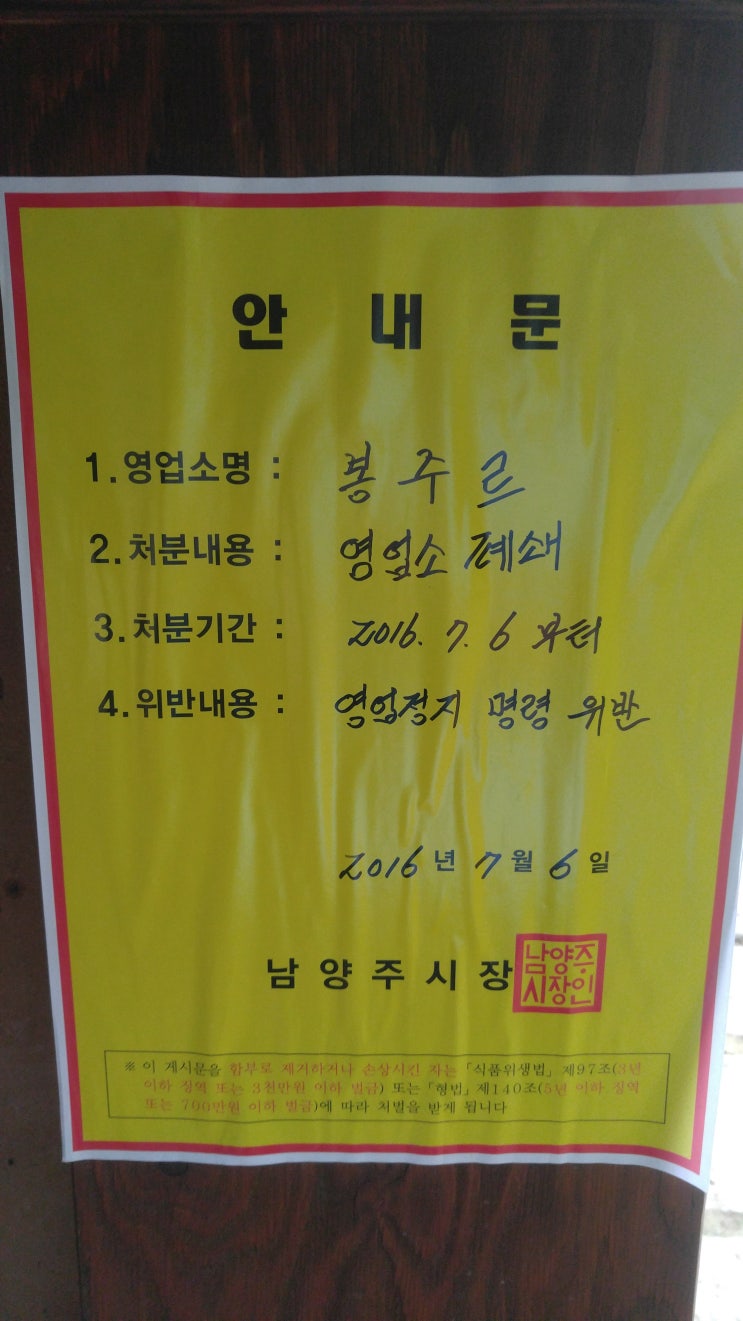 안 내 문
1. 영업소명 : 봉주르
2. 처분내용 : 영업소 폐쇄
3. 처분기간 : 2016. 7. 6 부터
4. 위반내용 : 영업정지 명령 위반
2016 년 7 월 6 일
남 양 주 시 장 남양주
시장인
※ 이 게시문을 함부로 제거하거나 손상시킨 자는 「식품위생법」 제97조(3년
이하 징역 또는 3천만원 이하 벌금) 또는 「형법」 제140조(5년 이하 징역
또는 700만원 이하 벌금)에 따라 처벌을 받게 됩니다